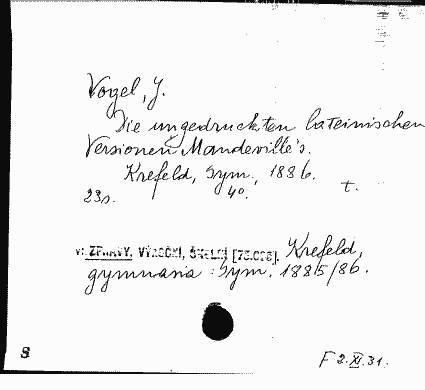 Vogel, J.
Die ungedruckten lateinischen
Versionen Mandeville's.
Krefeld, Gym., 1886.
23s. 4o. t.
v. ZPRÁVY, VÝROČNÍ, ŠKOLNÍ Krefeld,
gymnasia: Gym. 1885/86.
S
F 2.XI.31.